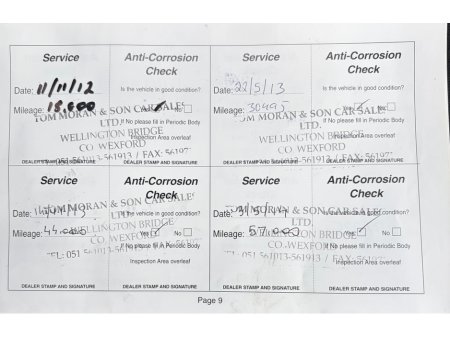 Service
Anti-Corrosion
Check
Date: 11/11/12
Is the vehicle in good condition?
Mileage: 18,600
Yes No
TOM MORAN & SON CAR SALES
LTD.
If No please fill in Periodic Body
WELLINGTON BRIDGE
Inspection Area overleaf
CO WEXFORD
DEALER STAMP AND SIGNATURE
DEALER STAMP AND SIGNATURE
Service
Anti-Corrosion
Check
Date: 22/5/13
Is the vehicle in good condition?
Mileage: 30495
Yes No
TOM MORAN & SON CAR SALES
LTD.
If No please fill in Periodic Body
WELLINGTON BRIDGE
Inspection Area overleaf
CO WEXFORD
DEALER STAMP AND SIGNATURE
DEALER STAMP AND SIGNATURE
Service
Anti-Corrosion
Check
Date:
TOM MORAN & SON CAR SALES
Is the vehicle in good condition?
LTD.
Mileage: 44,000
Yes No
WELLINGTON BRIDGE
CO. WEXFORD
If No please fill in Periodic Body
TEL: 051 561013-561913 / FAX:
Inspection Area overleaf
DEALER STAMP AND SIGNATURE
DEALER STAMP AND SIGNATURE
Service
Anti-Corrosion
Check
Date:
TOM MORAN & SON CAR SALES
Is the vehicle in good condition?
LTD.
Mileage: 57,000
Yes No
WELLINGTON BRIDGE
CO. WEXFORD
If No please fill in Periodic Body
Inspection Area overleaf
DEALER STAMP AND SIGNATURE
DEALER STAMP AND SIGNATURE
Page 9